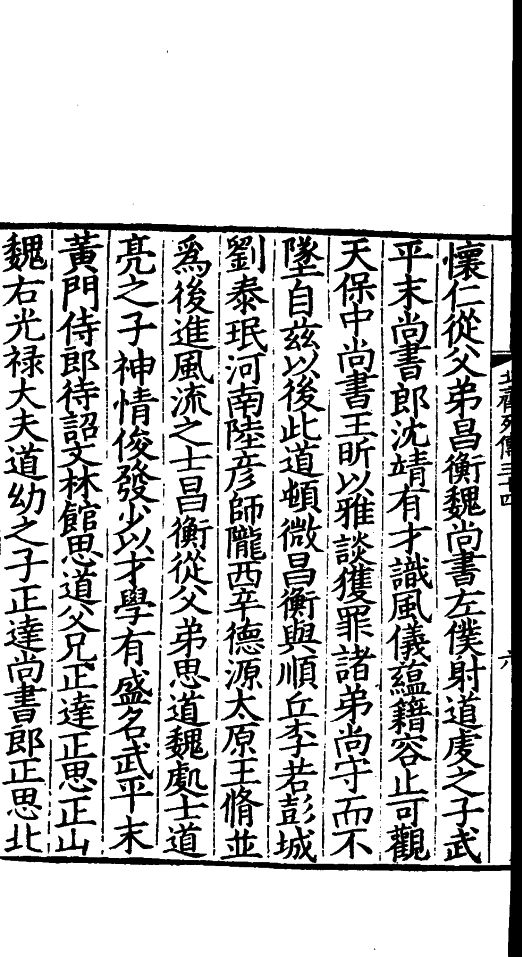 北齊列傳三十四
六
懷仁從父弟昌衡魏尚書左僕射道虔之子武
平末尚書郎沈靖有才識風儀蘊籍容止可觀
天保中尚書王昕以雅談獲罪諸弟尚守而不
墜自茲以後此道頓微昌衡與順丘李若彭城
劉泰珉河南陸彥師隴西辛德源太原王脩並
爲後進風流之士昌衡從父弟思道魏處士道
亮之子神情俊發少以才學有盛名武平末
黃門侍郎待詔文林館思道父兄正達正思正山
魏右光祿大夫道幼之子正達尚書郎正思北